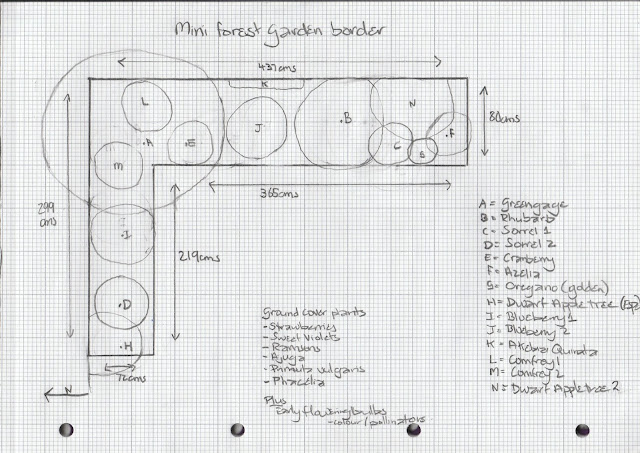 Mini forest garden border
437cms
K
L
N
80cms
J
.B
.F
.A
.E
C
G
M
365cms
299
cms
I
219cms
.D
.H
72cms
N
A = Greengage
B = Rhubarb
C = Sorrel 1
D = Sorrel 2
E = Cranberry
F = Azelia
G = Oregano (golden)
H = Dwarf Apple tree (Esp)
I = Blueberry 1
J = Blueberry 2
K = Akebia Quinata
L = Comfrey 1
M = Comfrey 2
N = Dwarf Apple tree 2
Ground cover plants
- Strawberries
- Sweet Violets
- Ramsons
- Ajuga
- Primula vulgaris
- Phacelia
Plus
Early flowering bulbs
- colour / pollinators